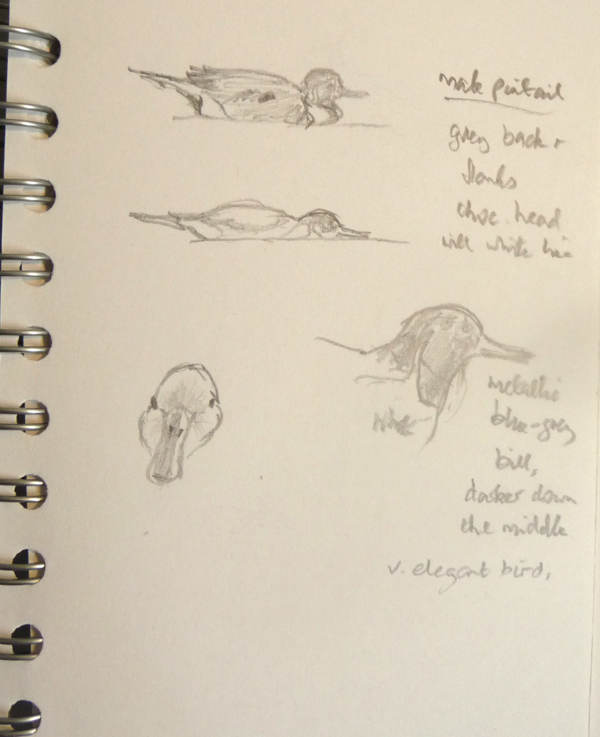 male pintail
grey back +
flanks
choc. head
with white line
white
metallic
blue-grey
bill,
darker down
the middle
v. elegant bird.